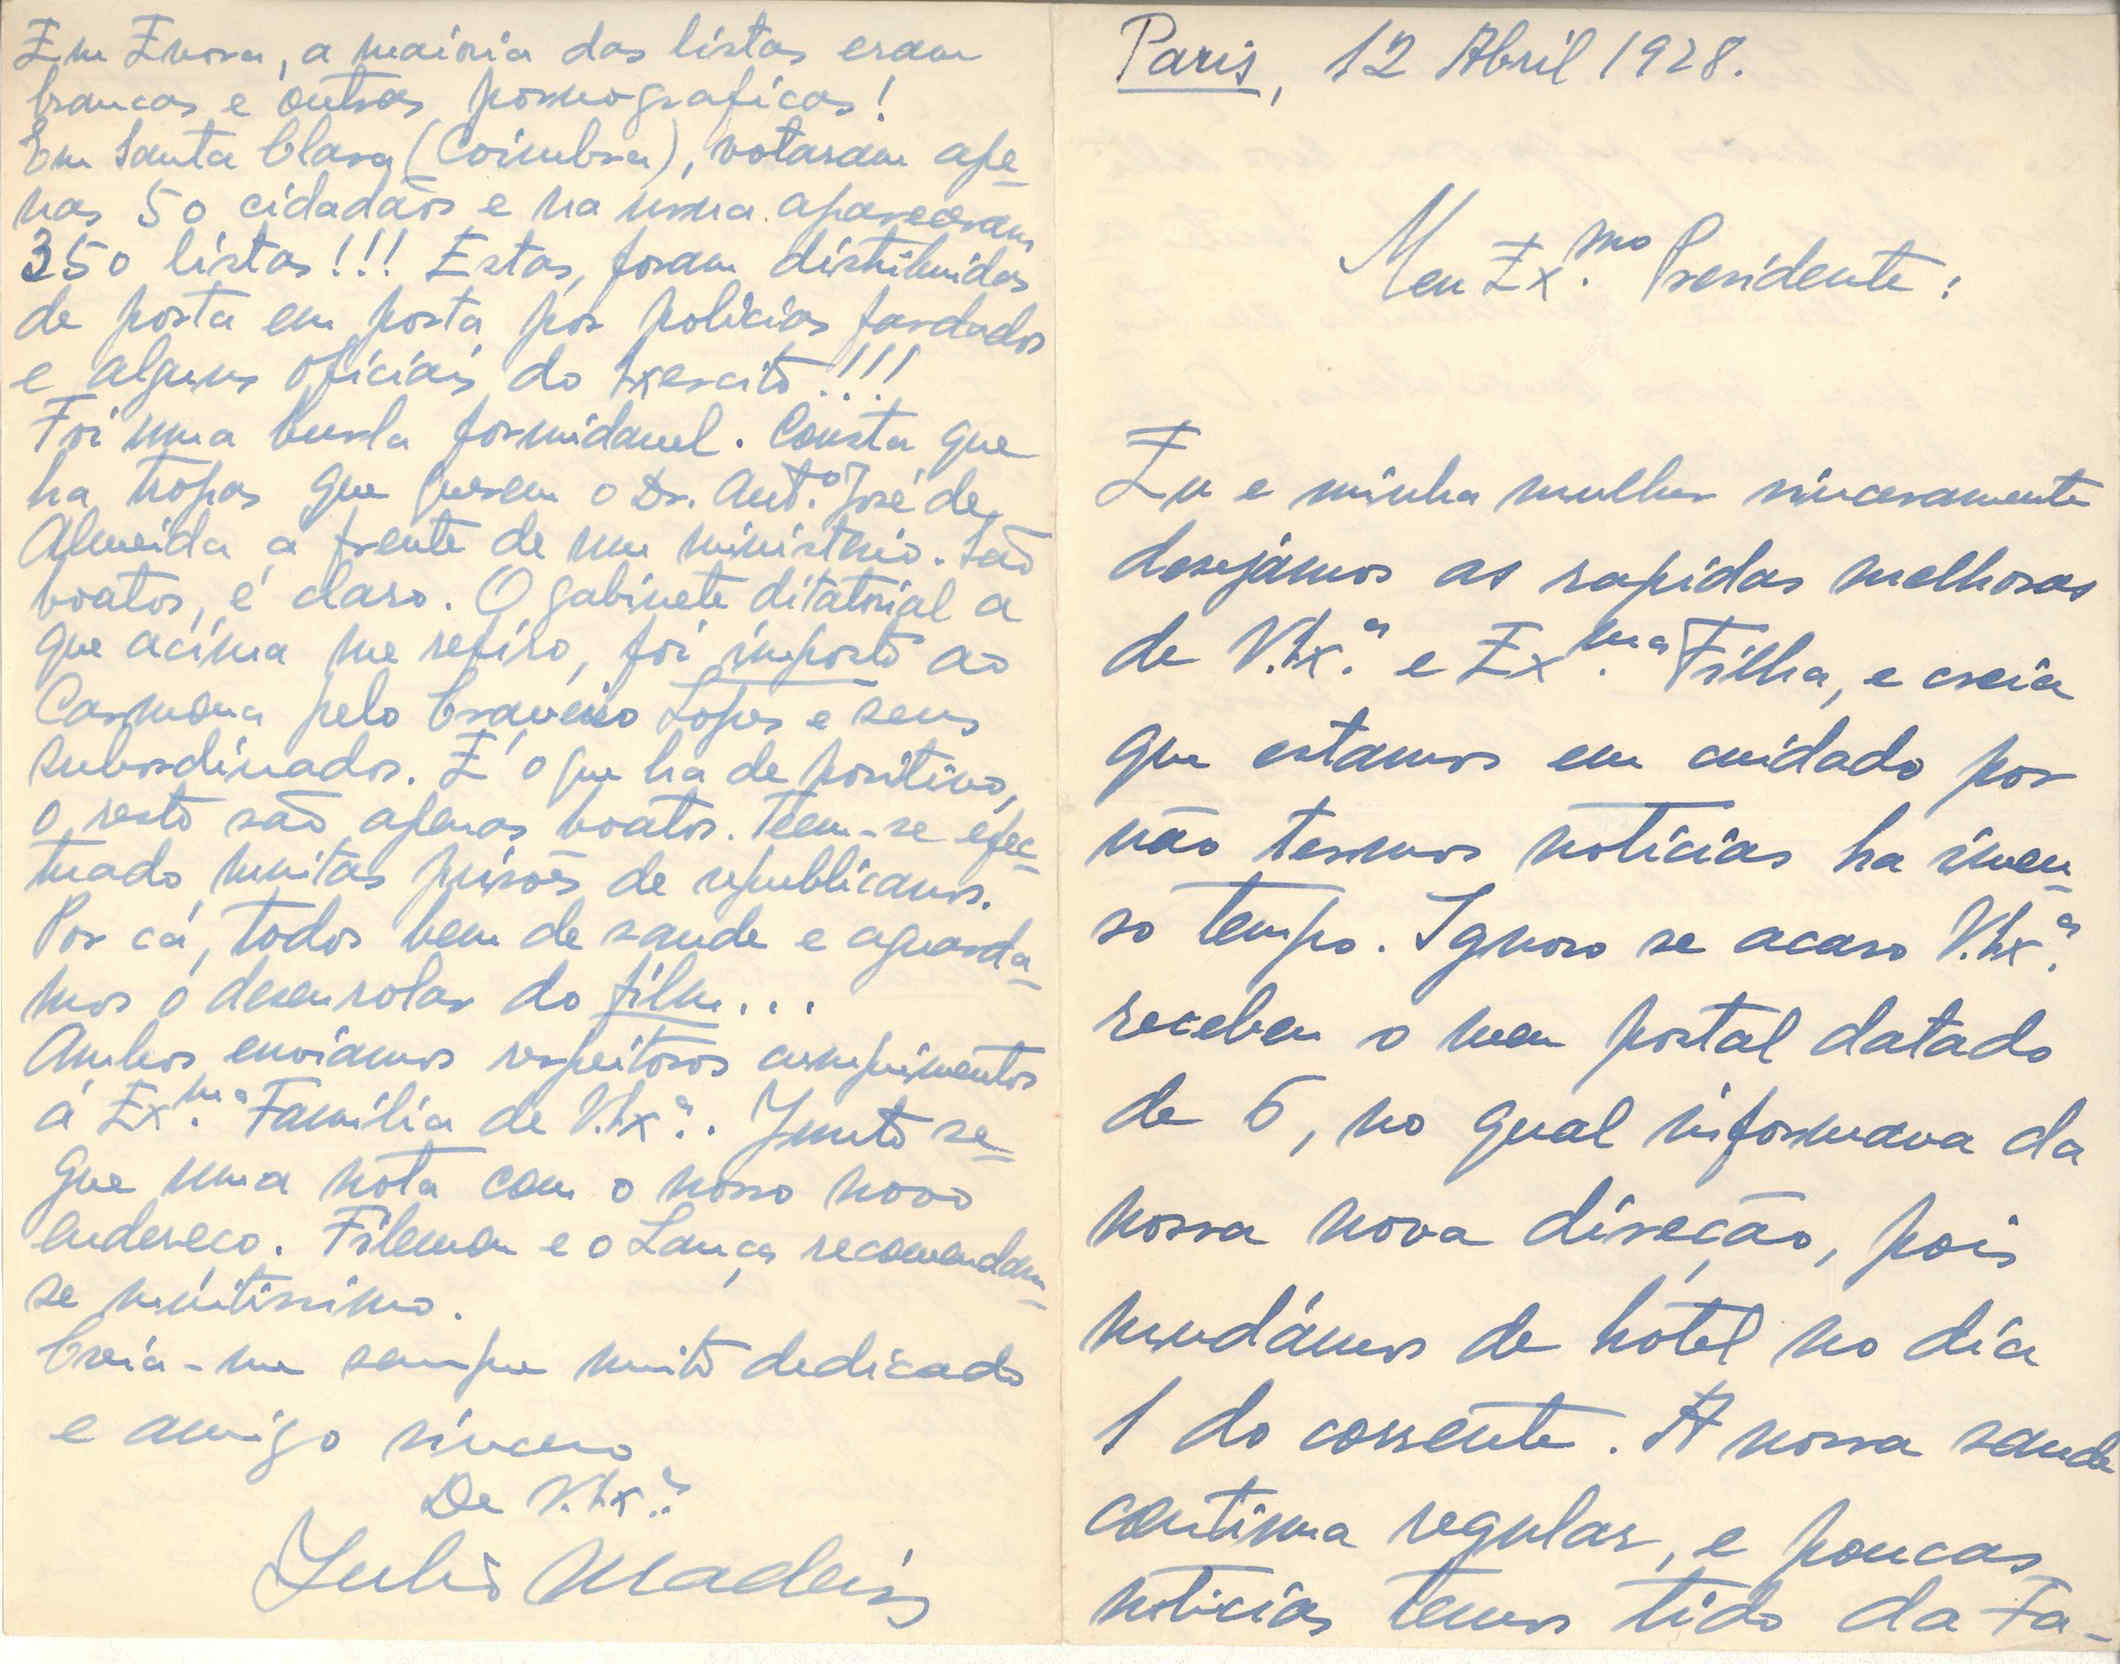 Paris, 12 Abril 1928.
Meu Ex.mo Presidente:
Eu e minha mulher sinceramente
desejámos as rapidas melhoras
de V. Ex.ª e Ex.ma Filha, e creia
que estamos em cuidado por
não termos noticias ha imen-
so tempo. Ignoro se acaso V. Ex.ª
recebeu o meu postal datado
de 6, no qual informava da
nossa nova direção, pois
mudámos de hotel no dia
1 do corrente. A nossa saude
continua regular, e poucas
noticias temos tido da Fa-
Em Evora, a maioria das listas eram
brancas e outras pornograficas!
Em Santa Clara (Coimbra), votaram ape-
nas 50 cidadãos e na urna apareceram
350 listas!!! Estas, foram distribuidas
de porta em porta por policias fardados
e alguns oficiais do Exercito!!!
Foi uma burla formidavel. Consta que
ha tropas que querem o Dr. Ant.º José de
Almeida á frente de um ministerio. São
boatos, é claro. O gabinete ditatorial a
que acima me refiro, foi imposto ao
Carmona pelo Craveiro Lopes e seus
subordinados. É o que ha de positivo,
o resto são apenas boatos. Teem-se efec-
tuado muitas prisões de republicanos.
Por cá, todos bem de saude e aguarda-
mos o desenrolar do film...
Ambos enviamos respeitosos cumprimentos
á Ex.ma Familia de V. Ex.ª. Junto se-
gue uma nota com o nosso novo
endereço. Filemon e o Lança recomendam-
se muitissimo.
Creia-me sempre muito dedicado
e amigo sincero
De V. Ex.ª
Julio Madeira